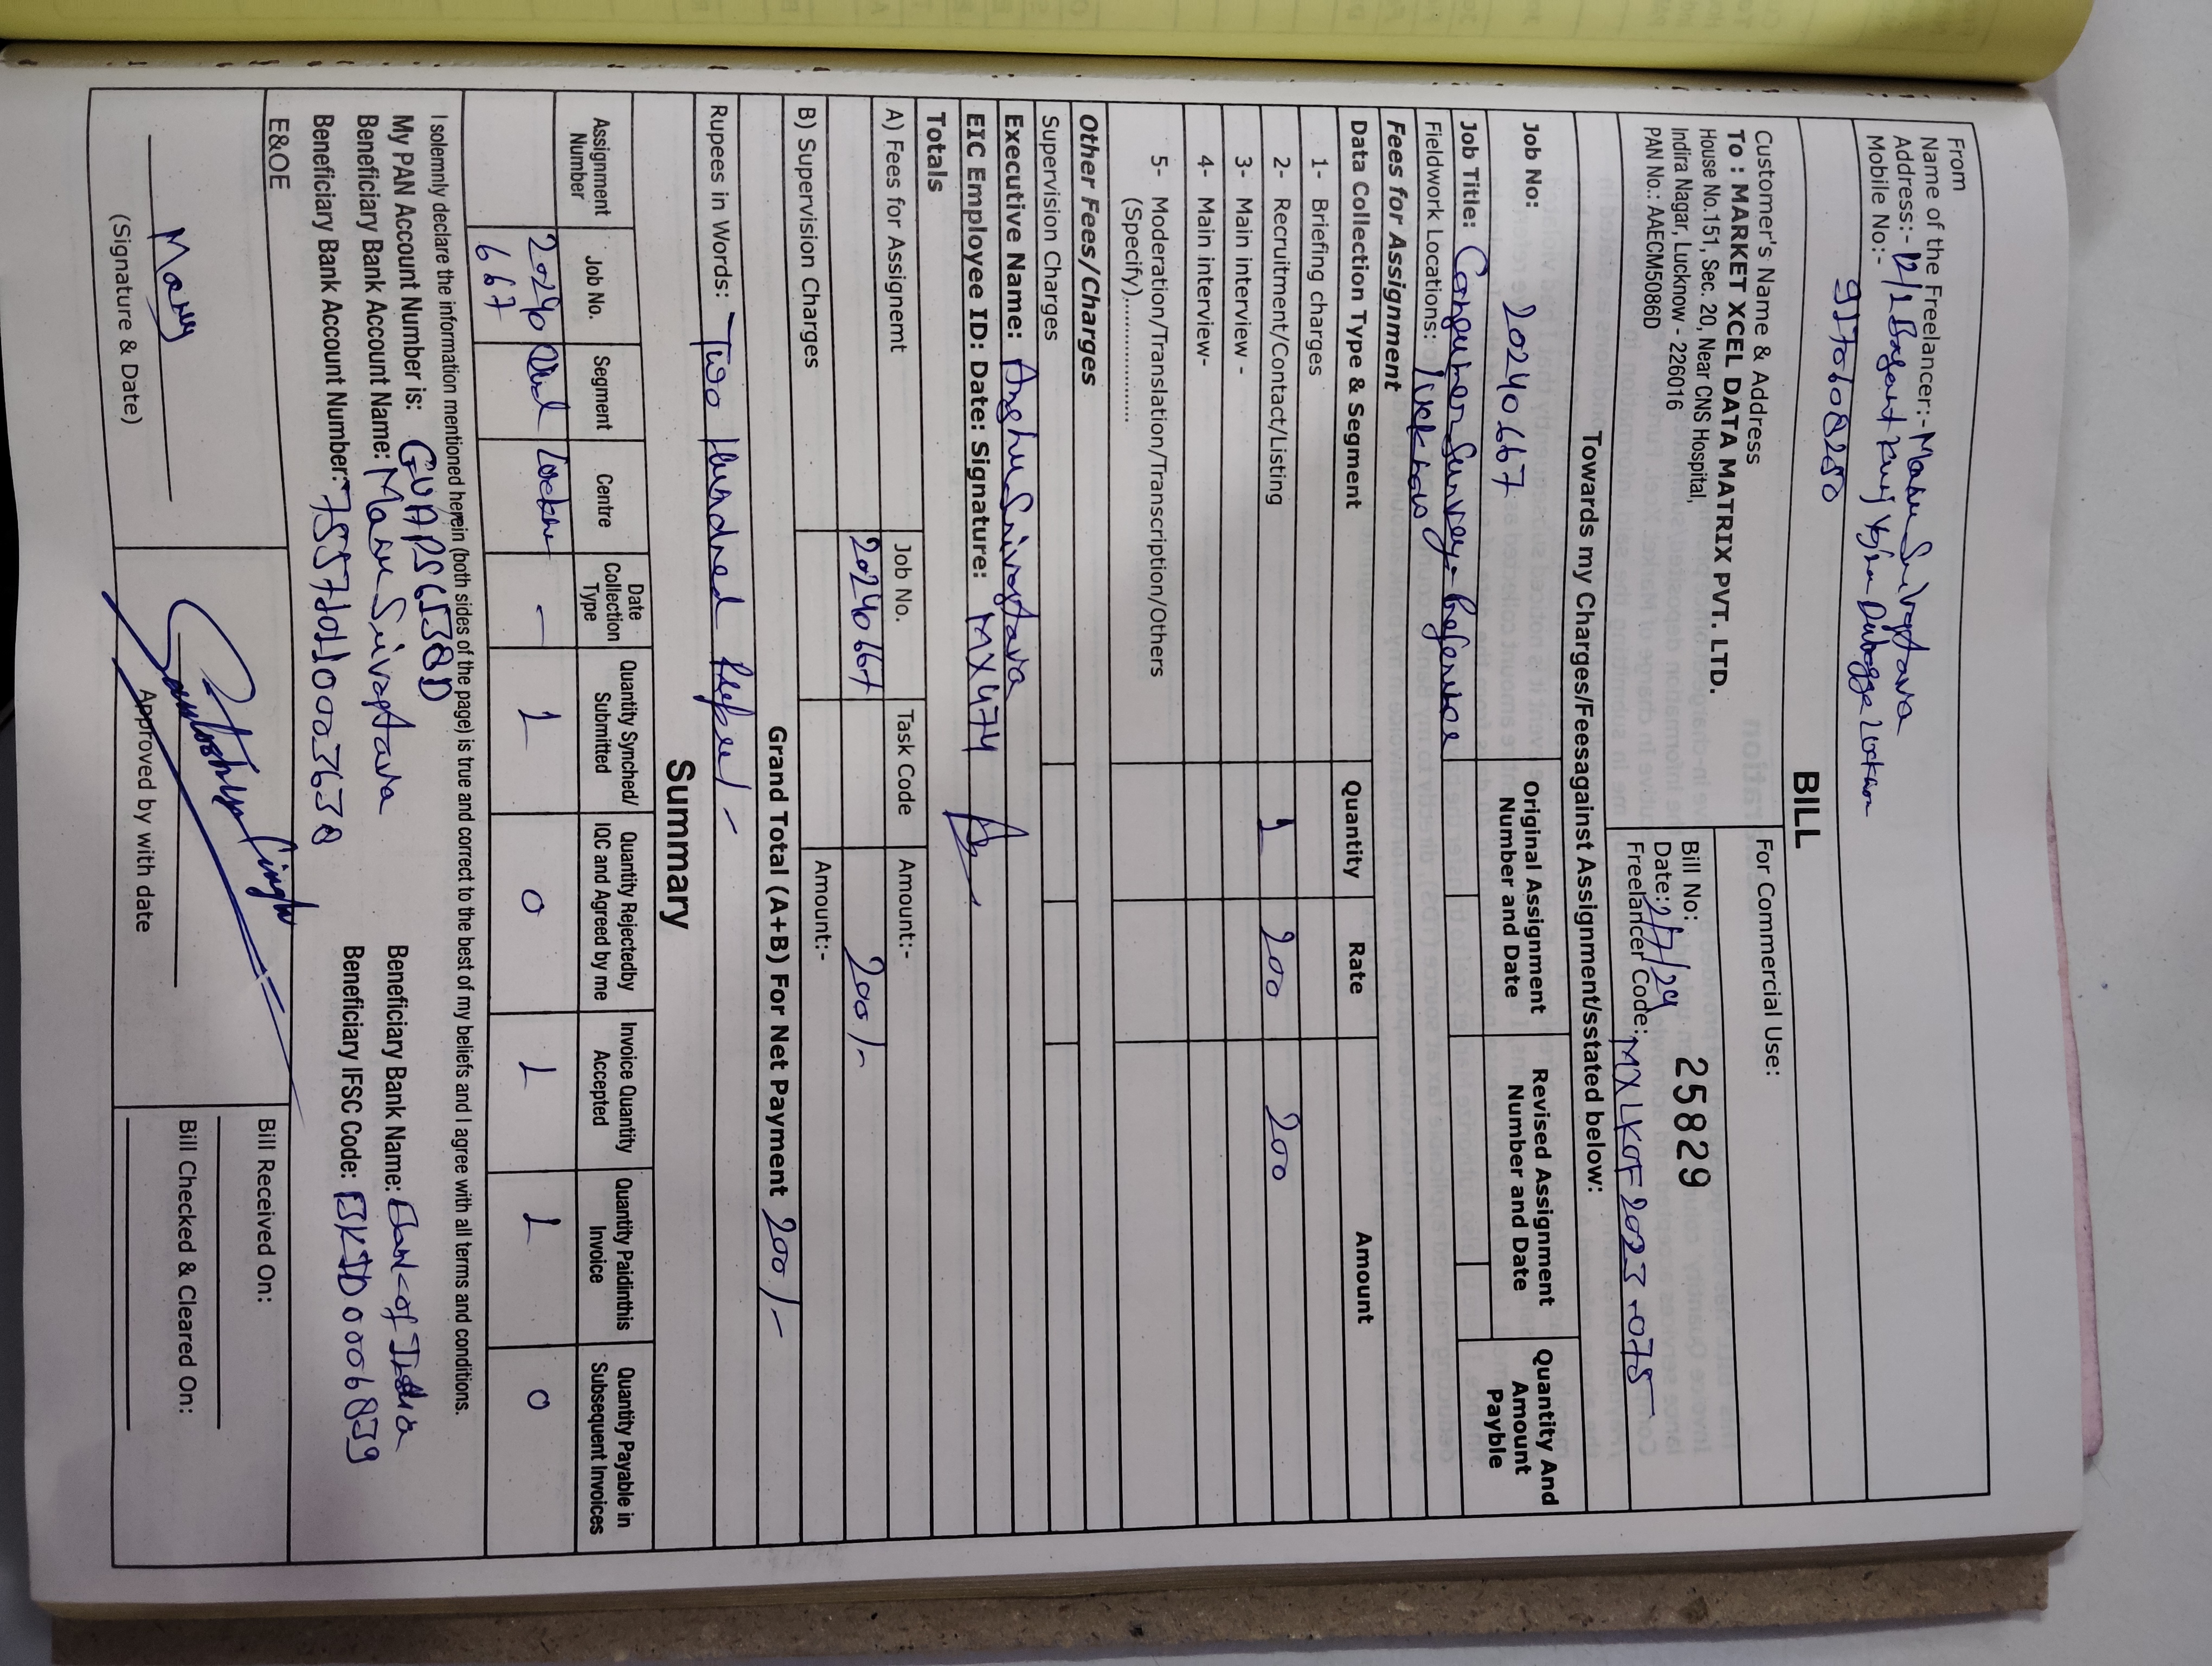 From
Name of the Freelancer:- Manu Srivastava
Address:- 12/2 Basant Kunj Yojna Dubagga Lucknow
Mobile No:-
9170608280
BILL
Customer's Name & Address
To : MARKET XCEL DATA MATRIX PVT. LTD.
House No.151, Sec. 20, Near CNS Hospital,
Indira Nagar, Lucknow - 226016
PAN No.: AAECM5086D
For Commercial Use:
Bill No: 25829
Date: 2/7/24
Freelancer Code: MXLKOF2023-075
Towards my Charges/Feesagainst Assignment/sstated below:
Job No: 20240667
Original Assignment Number and Date
Revised Assignment Number and Date
Quantity And Amount Payble
Job Title: Consumer Survey-Reference
Fieldwork Locations: Lucknow
Fees for Assignment
Data Collection Type & Segment Quantity Rate Amount
1- Briefing charges
2- Recruitment/Contact/Listing 1 200 200
3- Main interview -
4- Main interview-
5- Moderation/Translation/Transcription/Others
(Specify)................
Other Fees/Charges
Supervision Charges
Executive Name: Anshu Srivastava
EIC Employee ID: Date: Signature: MX474
Totals
A) Fees for Assignemt Job No. Task Code Amount:-
20240667 200/-
B) Supervision Charges Amount:-
Grand Total (A+B) For Net Payment 200/-
Rupees in Words: Two Hundred Rupees/-
Summary
Assignment Number Job No. Segment Centre Date Collection Type Quantity Synched/ Submitted Quantity Rejectedby IQC and Agreed by me Invoice Quantity Accepted Quantity Paidinthis Invoice Quantity Payable in Subsequent Invoices
20240 - 1 0 1 1 0
667
I solemnly declare the information mentioned herein (both sides of the page) is true and correct to the best of my beliefs and I agree with all terms and conditions.
My PAN Account Number is: GUAPS6138D
Beneficiary Bank Account Name: Manu Srivastava Beneficiary Bank Name: Bank of India
Beneficiary Bank Account Number: 755710110003638 Beneficiary IFSC Code: BKID0006839
E&OE
Manu
(Signature & Date)
Santosh Singh
Approved by with date
Bill Received On:
Bill Checked & Cleared On: